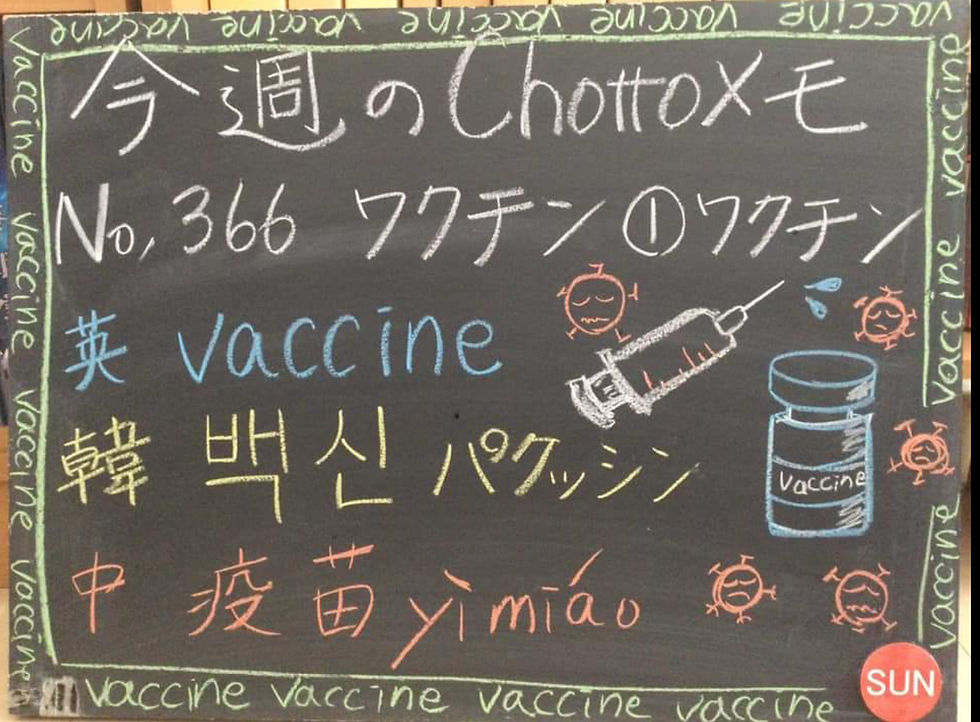 vaccine vaccine vaccine vaccine vaccine vaccine
今週のChottoメモ
No,366 ワクチン①ワクチン
英 vaccine
韓 백신 パクッシン
vaccine
中 疫苗 yìmiáo
vaccine vaccine vaccine vaccine
vaccine vaccine vaccine vaccine
vaccine vaccine vaccine
SUN